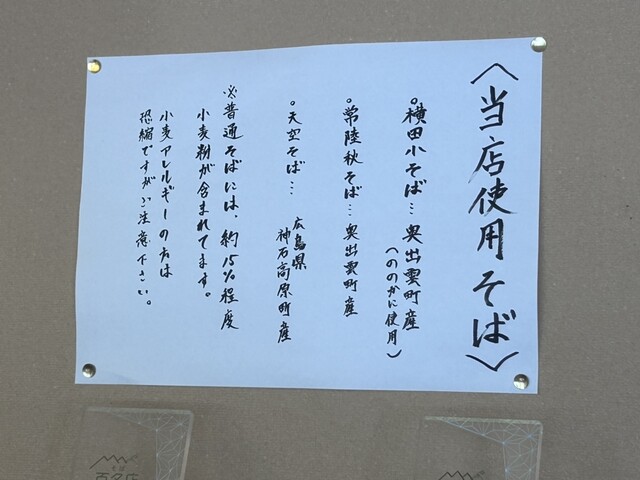 〈当店使用そば〉
○横田小そば…奥出雲町産
(ののかに使用)
○常陸秋そば…奥出雲町産
○天空そば…
広島県
神石高原町産
※普通そばには、約15%程度
小麦粉が含まれてます。
小麦アレルギーの方は
恐縮ですがご注意下さい。
そば
百名店